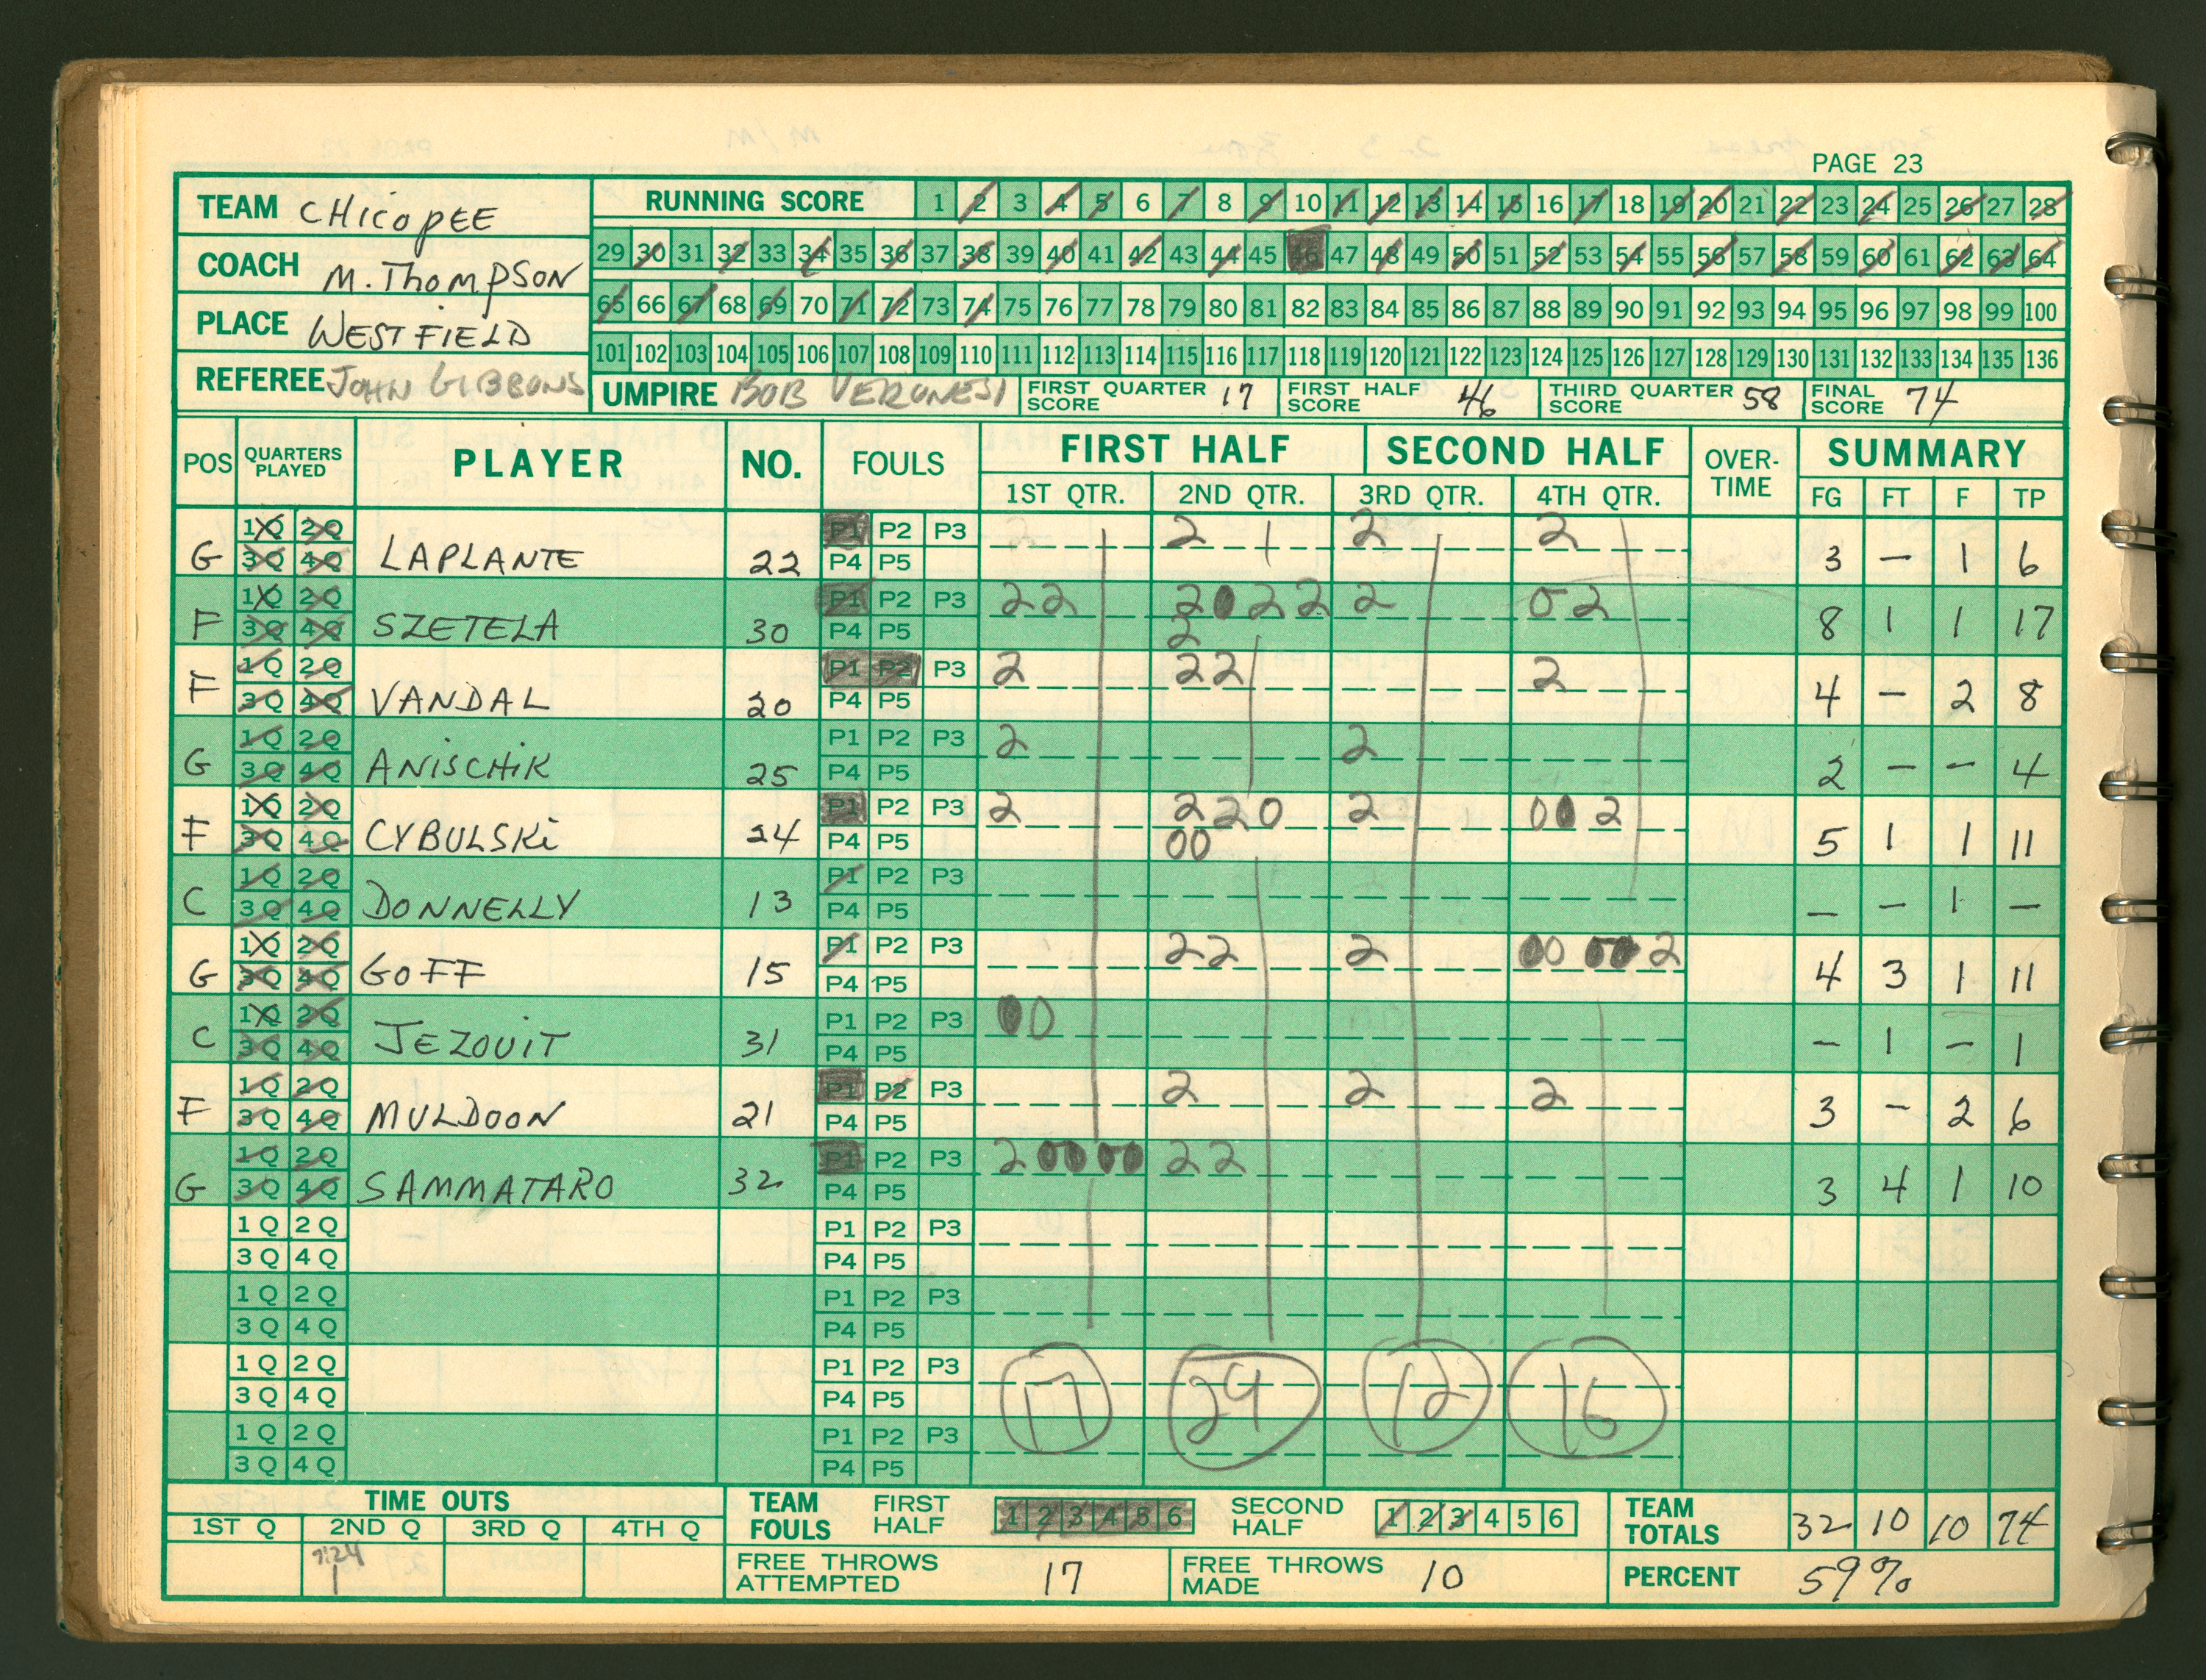 PAGE 23
TEAM CHICOPEE
COACH M. THOMPSON
PLACE WESTFIELD
REFEREE JOHN GIBBONS
RUNNING SCORE 1 2 3 4 5 6 7 8 9 10 11 12 13 14 15 16 17 18 19 20 21 22 23 24 25 26 27 28
29 30 31 32 33 34 35 36 37 38 39 40 41 42 43 44 45 46 47 48 49 50 51 52 53 54 55 56 57 58 59 60 61 62 63 64
65 66 67 68 69 70 71 72 73 74 75 76 77 78 79 80 81 82 83 84 85 86 87 88 89 90 91 92 93 94 95 96 97 98 99 100
101 102 103 104 105 106 107 108 109 110 111 112 113 114 115 116 117 118 119 120 121 122 123 124 125 126 127 128 129 130 131 132 133 134 135 136
UMPIRE BOB VERONESI FIRST QUARTER SCORE 17 FIRST HALF SCORE 46 THIRD QUARTER SCORE 58 FINAL SCORE 74
POS QUARTERS PLAYED PLAYER NO. FOULS FIRST HALF SECOND HALF OVER-TIME SUMMARY
1ST QTR. 2ND QTR. 3RD QTR. 4TH QTR. FG FT F TP
1Q 2Q P1 P2 P3 2 1 2 2
G 3Q 4Q LAPLANTE 22 P4 P5 3 – 1 6
1Q 2Q P1 P2 P3 22 2022 2 02
F 3Q 4Q SZETELA 30 P4 P5 2 8 1 1 17
1Q 2Q P1 P2 P3 2 22 2
F 3Q 4Q VANDAL 20 P4 P5 4 – 2 8
1Q 2Q P1 P2 P3 2 2
G 3Q 4Q ANISCHIK 25 P4 P5 2 – – 4
1Q 2Q P1 P2 P3 2 220 2 00 2
F 3Q 4Q CYBULSKI 24 P4 P5 00 5 1 1 11
1Q 2Q P1 P2 P3
C 3Q 4Q DONNELLY 13 P4 P5 – – 1 –
1Q 2Q P1 P2 P3 22 2 00 00 2
G 3Q 4Q GOFF 15 P4 P5 4 3 1 11
1Q 2Q P1 P2 P3 00
C 3Q 4Q JEZOUIT 31 P4 P5 – 1 – 1
1Q 2Q P1 P2 P3 2 2 2
F 3Q 4Q MULDOON 21 P4 P5 3 – 2 6
1Q 2Q P1 P2 P3 2 00 00 22
G 3Q 4Q SAMMATARO 32 P4 P5 3 4 1 10
1Q 2Q P1 P2 P3
3Q 4Q P4 P5
1Q 2Q P1 P2 P3
3Q 4Q P4 P5
1Q 2Q P1 P2 P3
3Q 4Q P4 P5
17 29 12 16
1Q 2Q P1 P2 P3
3Q 4Q P4 P5
TIME OUTS
1ST Q 2ND Q 3RD Q 4TH Q
7:24
1
TEAM FOULS FIRST HALF 1 2 3 4 5 6 SECOND HALF 1 2 3 4 5 6 TEAM TOTALS 32 10 10 74
FREE THROWS ATTEMPTED 17 FREE THROWS MADE 10 PERCENT 59%